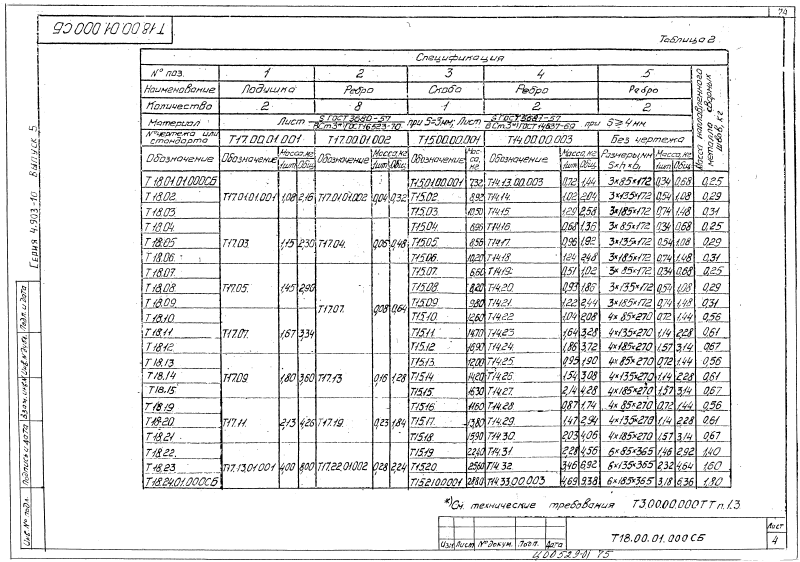 74
Т18.00.01.000СБ
Таблица 2
Спецификация
№ поз. 1 2 3 4 5 Масса наплавленного металла сварных швов, кг
Наименование Подушка Ребро Скоба Ребро Ребро
Количество 2 8 1 2 2
Материал Лист при S=3мм; Лист при S≥4мм
№ чертежа или стандарта Т17.00.01.001 Т17.00.01.002 Т15.00.00.001 Т14.00.00.003 Без чертежа
Обозначение Обозначение Масса, кг 1шт. Общ. Обозначение Масса, кг 1шт. Общ. Обозначение Масса, кг Обозначение Масса, кг 1шт. Общ. Размеры, мм S×h×b₁ Масса, кг 1шт. Общ.
Т18.01.01.000СБ Т15.01.00.001 7,32 Т14.13.00.003 0,72 1,44 3×85×172 0,34 0,68 0,25
Т18.02. Т17.01.01.001 1,08 2,16 Т17.01.01.002 0,04 0,32 Т15.02. 8,92 Т14.14. 1,02 2,04 3×135×172 0,54 1,08 0,29
Т18.03. Т15.03. 10,50 Т14.15. 1,29 2,58 3×185×172 0,74 1,48 0,31
Т18.04. Т15.04. 6,96 Т14.16. 0,68 1,36 3×85×172 0,34 0,68 0,25
Т18.05 Т17.03. 1,15 2,30 Т17.04. 0,06 0,48 Т15.05. 8,56 Т14.17. 0,96 1,92 3×135×172 0,54 1,08 0,29
Т18.06. Т15.06. 10,20 Т14.18. 1,24 2,48 3×185×172 0,74 1,48 0,31
Т18.07. Т15.07. 6,60 Т14.19. 0,51 1,02 3×85×172 0,34 0,68 0,25
Т18.08 Т17.05. 1,45 2,90 Т15.08. 8,20 Т14.20. 0,93 1,86 3×135×172 0,54 1,08 0,29
Т18.09. Т17.07. 0,08 0,64 Т15.09 9,80 Т14.21. 1,22 2,44 3×185×172 0,74 1,48 0,31
Т18.10 Т15.10. 12,60 Т14.22 1,04 2,08 4×85×270 0,72 1,44 0,56
Т18.11. Т17.07. 1,67 3,34 Т15.11. 14,70 Т14.23 1,64 3,28 4×135×270 1,14 2,28 0,61
Т18.12. Т15.12 16,90 Т14.24. 1,86 3,72 4×185×270 1,57 3,14 0,67
Т18.13 Т15.13. 12,00 Т14.25. 0,95 1,90 4×85×270 0,72 1,44 0,56
Т18.14 Т17.09. 1,80 3,60 Т17.13 0,16 1,28 Т15.14 14,20 Т14.26. 1,54 3,08 4×135×270 1,14 2,28 0,61
Т18.15 Т15.15. 16,30 Т14.27. 2,14 4,28 4×185×270 1,57 3,14 0,67
Т18.19 Т15.16 11,60 Т14.28. 0,87 1,74 4×85×270 0,72 1,44 0,56
Т18.20. Т17.11. 2,13 4,26 Т17.19. 0,23 1,84 Т15.17. 13,80 Т14.29. 1,47 2,94 4×135×270 1,14 2,28 0,61
Т18.21 Т15.18. 15,90 Т14.30. 2,03 4,06 4×185×270 1,57 3,14 0,67
Т18.22. Т15.19 22,40 Т14.31 2,28 4,56 6×85×365 1,46 2,92 1,40
Т18.23 Т17.13.01.001 4,00 8,00 Т17.22.01.002 0,28 2,24 Т15.20. 25,60 Т14.32. 3,46 6,92 6×135×365 2,32 4,64 1,60
Т18.24.01.000СБ Т15.21.00.001 28,80 Т14.33.00.003 4,69 9,38 6×185×365 3,18 6,36 1,80
*) См. технические требования Т3.00.00.000ТТ п.1.3
Серия 4.903-10 Выпуск 5
Инв.№ подл. Подпись и дата Взам. инв.№ Инв.№ дубл. Подп. и дата
Изм Лист № докум. Подп. Дата
Т18.00.01.000СБ
Лист
4
Ц00529-01 75